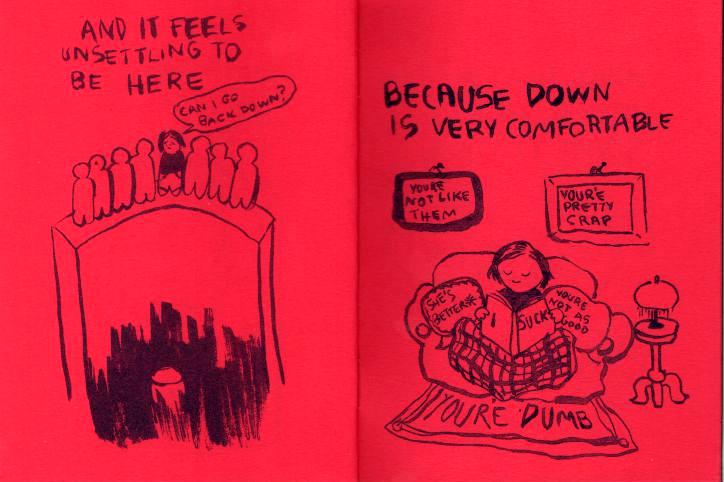 AND IT FEELS
UNSETTLING TO
BE HERE
CAN I GO
BACK DOWN?
BECAUSE DOWN
IS VERY COMFORTABLE
YOURE
NOT LIKE
THEM
YOUR'E
PRETTY
CRAP
SHE'S
BETTER
I SUCK
YOURE
NOT AS
GOOD
YOU'RE DUMB